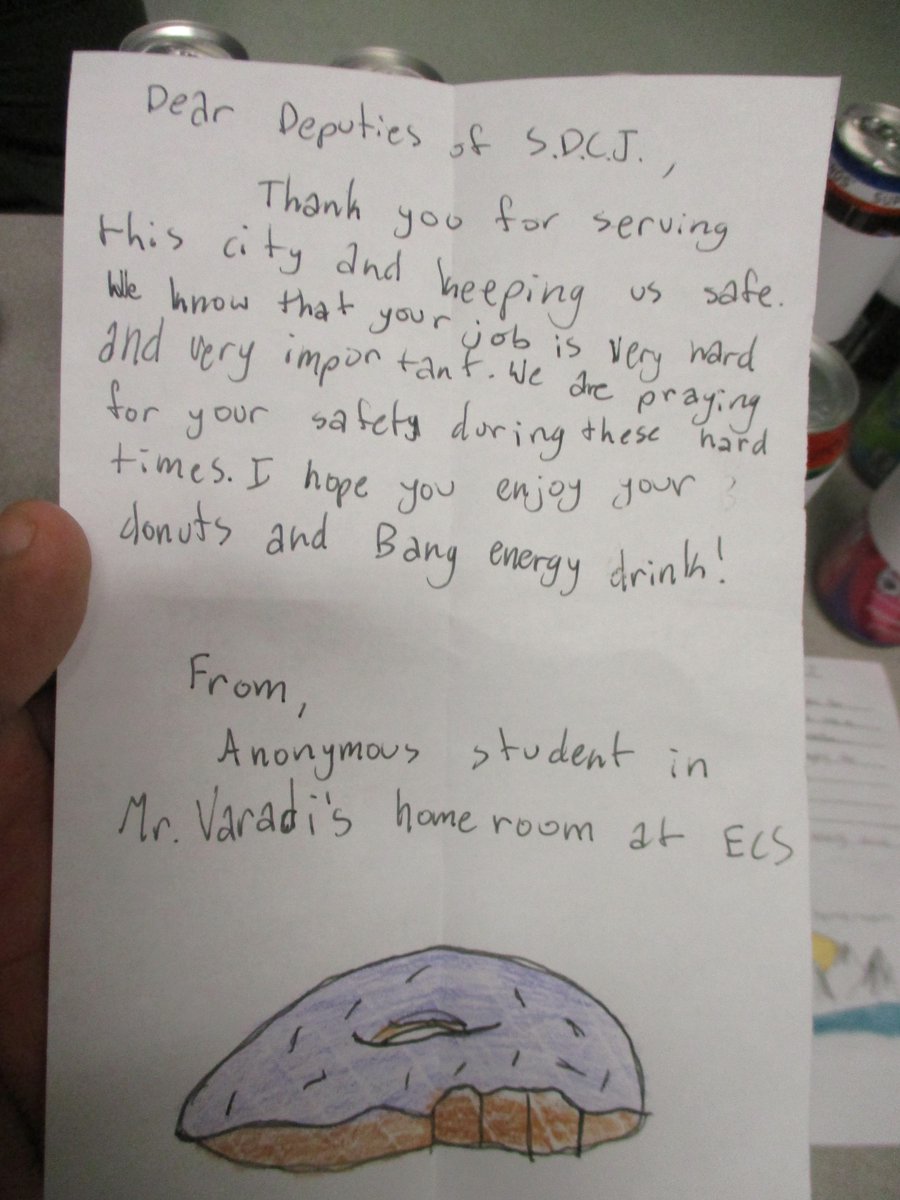 Dear Deputies of S.D.C.J.,
Thank you for serving
this city and keeping us safe.
We know that your job is very hard
and very important. We are praying
for your safety during these hard
times. I hope you enjoy your
donuts and Bang energy drink!
From,
Anonymous student in
Mr. Varadi's homeroom at ECS